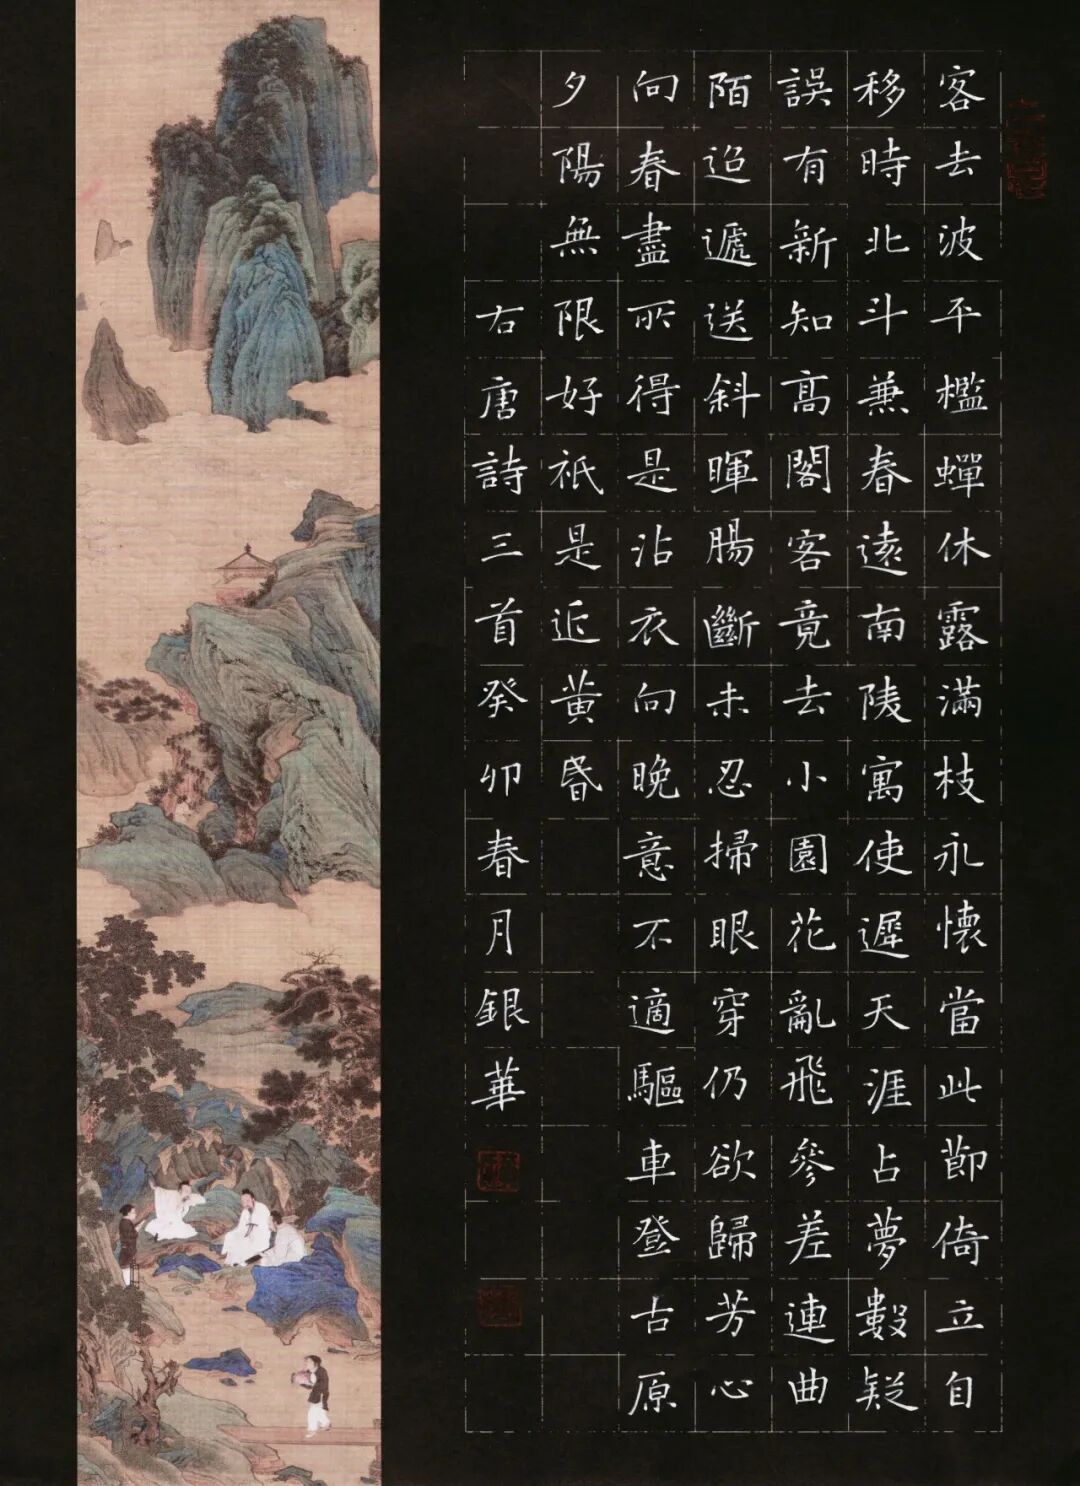 客去波平檻蟬休露滿枝永懷當此節倚立自
移時北斗兼春遠南陵寓使遲天涯占夢數疑
誤有新知高閣客竟去小園花亂飛參差連曲
陌迢遞送斜暉腸斷未忍掃眼穿仍欲歸芳心
向春盡所得是沾衣向晚意不適驅車登古原
夕陽無限好祇是近黃昏
右唐詩三首癸卯春月銀華